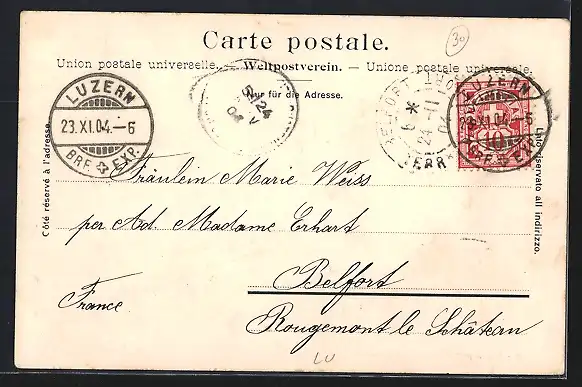 30
Carte postale.
Union postale universelle. — Weltpostverein. — Unione postale universale.
Nur für die Adresse.
LUZERN
23.XI.04.–6
BRF. EXP.
24
04
BELFORT
24 -11
TERR
LUZERN
23.XI.04.–6
BRF. EXP.
10
Côté réservé à l'adresse.
Lato riservato all indirizzo.
Fräulein Marie Weiss
per Ad. Madame Erhart
Belfort
France.
Rougemont le Schâteau
LU